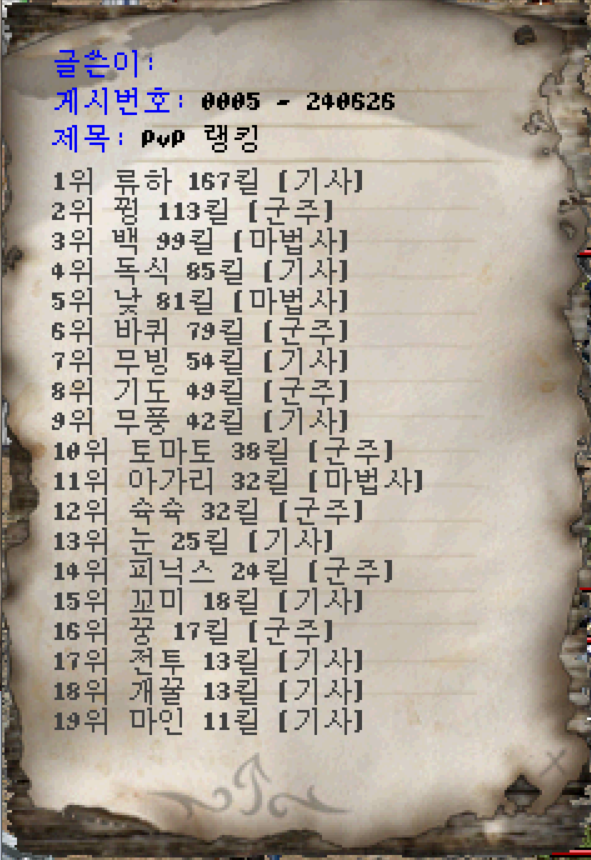 글쓴이:
게시번호: 0005 - 240626
제목: PvP 랭킹
1위 류하 167킬 [기사]
2위 쩡 113킬 [군주]
3위 백 99킬 [마법사]
4위 독식 85킬 [기사]
5위 낮 81킬 [마법사]
6위 바퀴 79킬 [군주]
7위 무빙 54킬 [기사]
8위 기도 49킬 [군주]
9위 무풍 42킬 [기사]
10위 토마토 38킬 [군주]
11위 아가리 32킬 [마법사]
12위 슉슉 32킬 [군주]
13위 눈 25킬 [기사]
14위 피닉스 24킬 [군주]
15위 꼬미 18킬 [기사]
16위 꿍 17킬 [군주]
17위 전투 13킬 [기사]
18위 개꿀 13킬 [기사]
19위 마인 11킬 [기사]